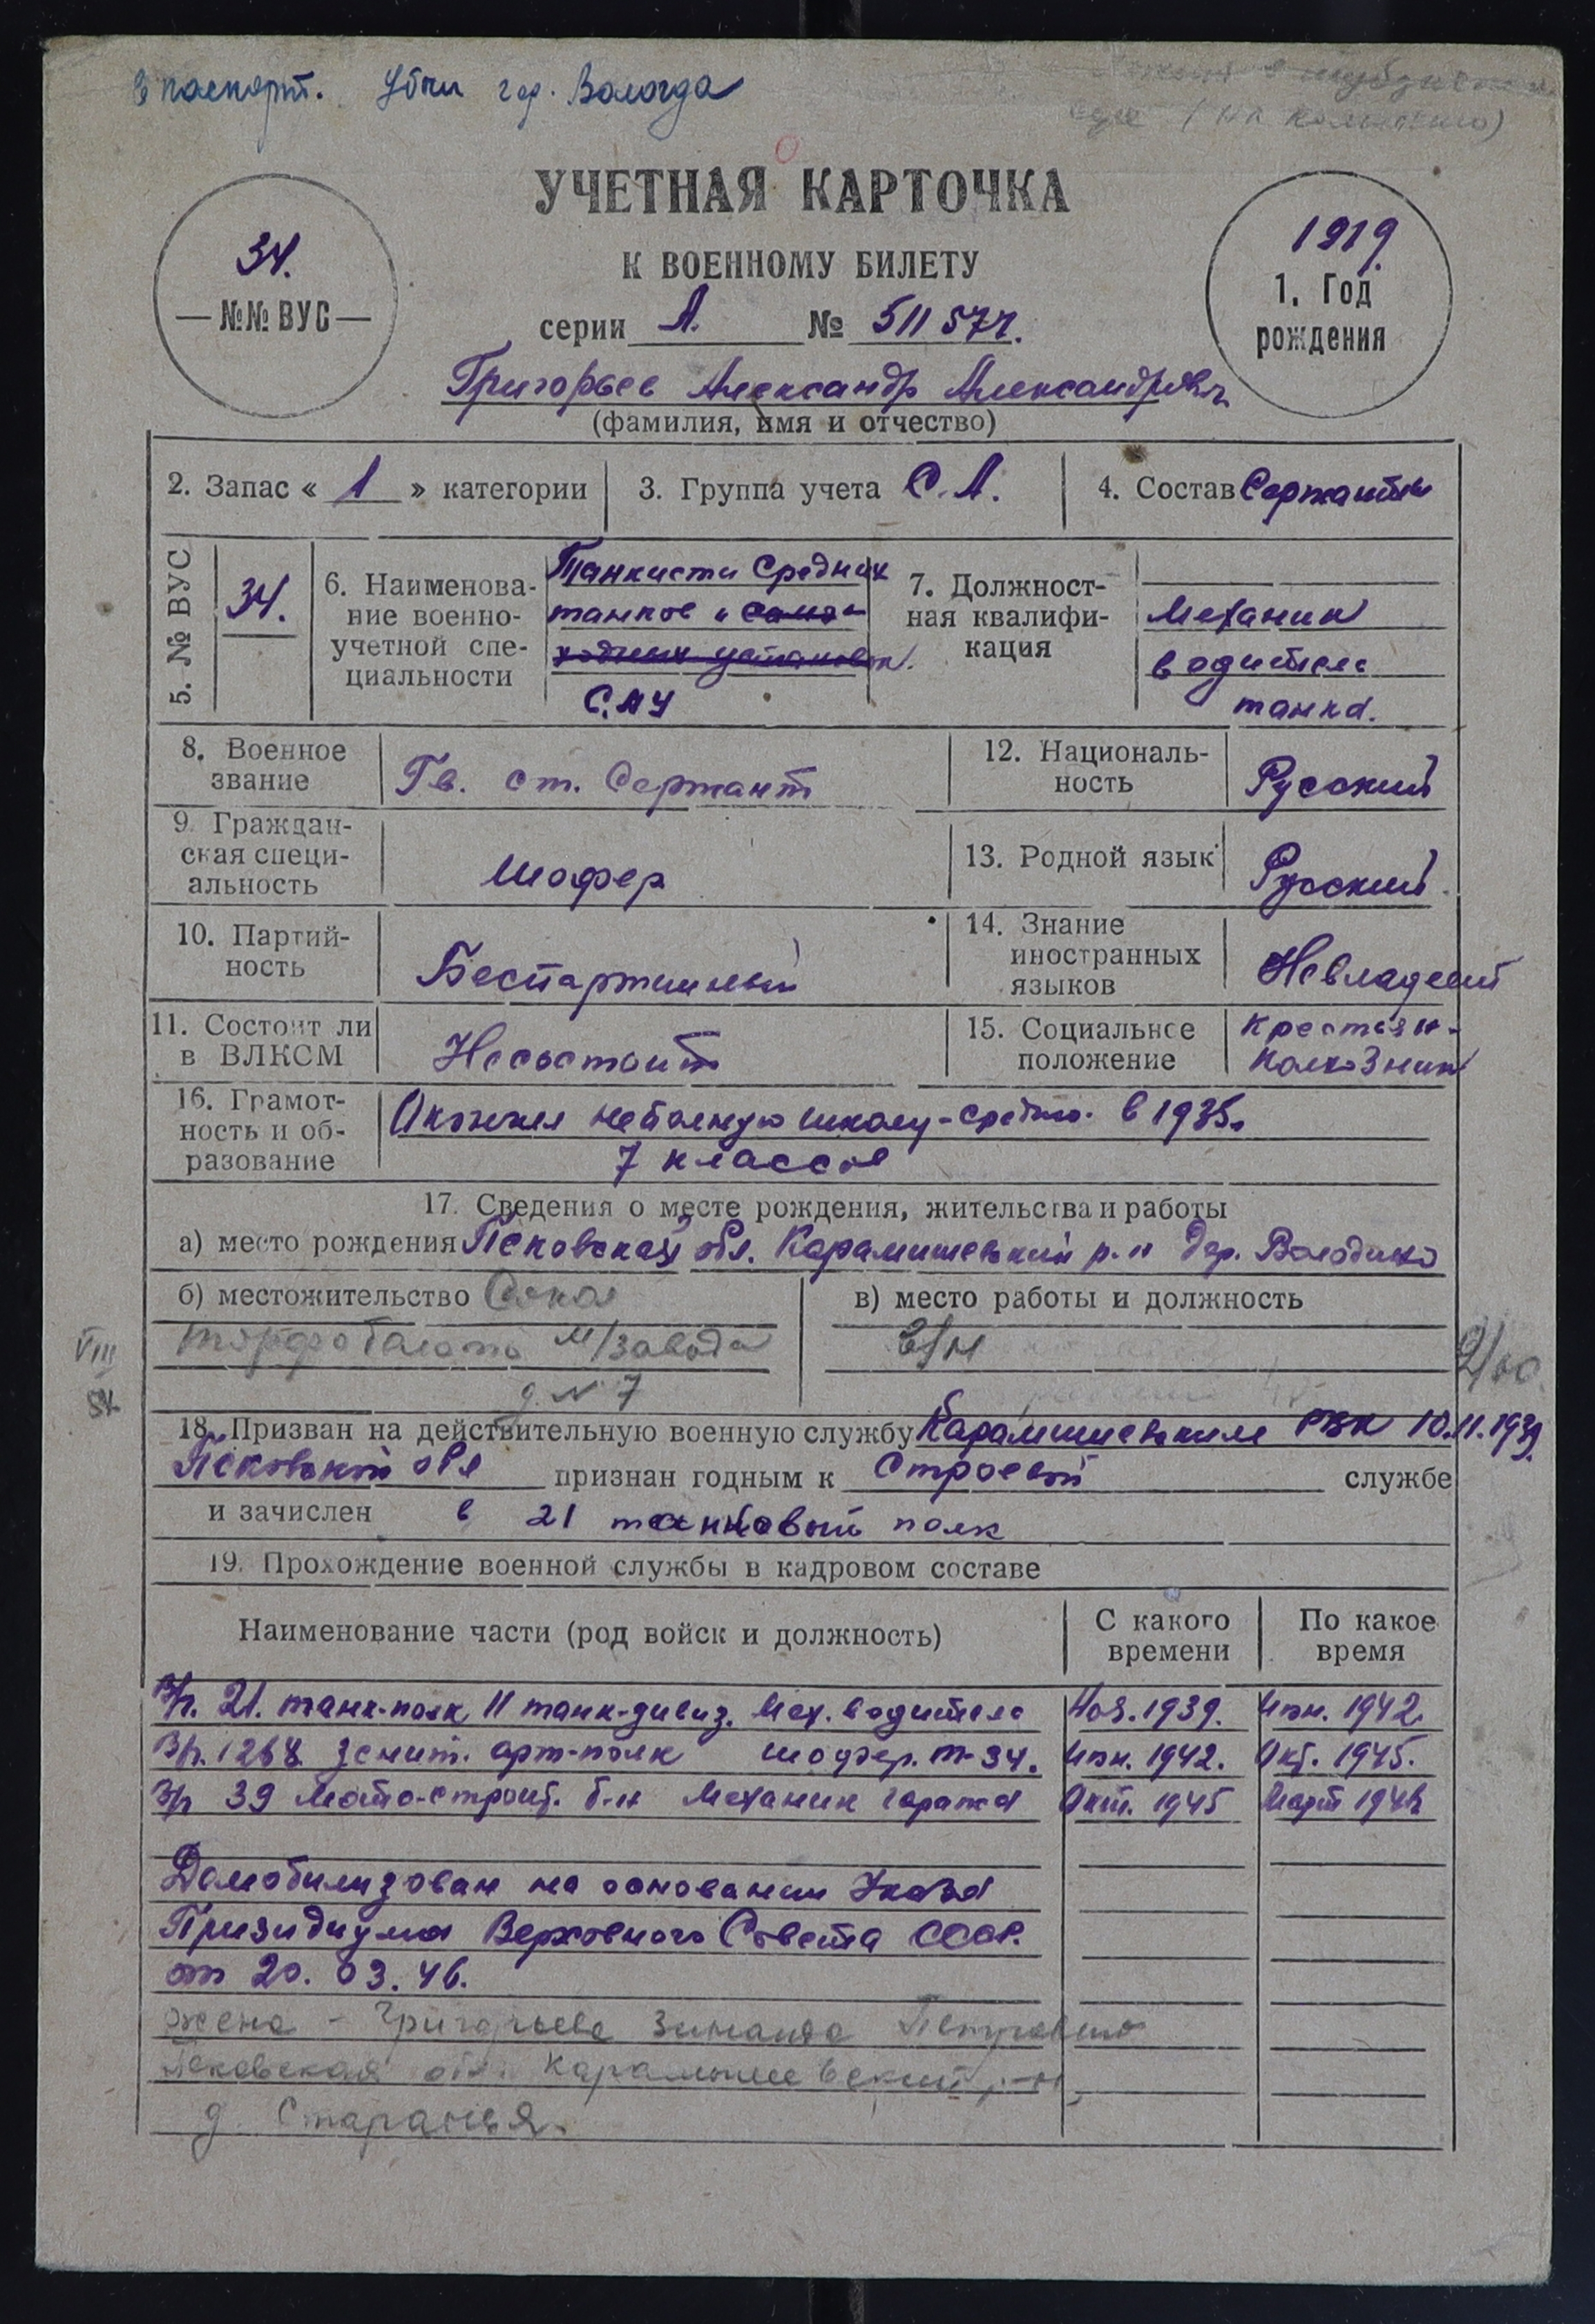 в паспорт. Убыл гор. Вологда
УЧЕТНАЯ КАРТОЧКА
К ВОЕННОМУ БИЛЕТУ
серии А. № 511577.
34.
— №№ ВУС —
1919.
1. Год
рождения
Григорьев Александр Александрович
(фамилия, имя и отчество)
2. Запас « 1 » категории 3. Группа учета С.А. 4. Состав Сержанты
5. № ВУС 34. 6. Наименова-
ние военно-
учетной спе-
циальности
Танкисты средних
танков и само-
ходных установок.
САУ
7. Должност-
ная квалифи-
кация
Механик
водитель
танка.
8. Военное
звание
Гв. ст. Сержант
12. Националь-
ность
Русский
9. Граждан-
ская специ-
альность
Шофер
13. Родной язык
Русский
10. Партий-
ность
Беспартийный
14. Знание
иностранных
языков
Невладеет
11. Состоит ли
в ВЛКСМ
Несостоит
15. Социальнсе
положение
Крестьян-
Колхозник
16. Грамот-
ность и об-
разование
Окончил неполную школу-средню. в 1935.
7 классов
17. Сведения о месте рождения, жительства и работы
а) место рождения Псковская обл. Карамышевский р-н дер. Володино
б) местожительство Сокол
торфоболото м/завода
д. № 7
в) место работы и должность
VIII
18. Призван на действительную военную службу Карамышевским РВК 10.11.1939.
Псковской обл признан годным к Строевой службе
и зачислен в 21 танковый полк
19. Прохождение военной службы в кадровом составе
Наименование части (род войск и должность) С какого
времени По какое
время
В/ч. 21. танк-полк 11 танк-дивиз. Мех. водитель Ноя. 1939. Июн. 1942.
В/ч. 1268 Зенит. арт-полк шофер. Т-34. Июн. 1942. Окт. 1945.
В/ч 39 Мото-строит. б-н Механик гаража Окт. 1945 Март 1946
Демобилизован на основании Указа
Призидиума Верховного Совета СССР.
от 20. 03. 46.
жена – Григорьева Зинаида Петровна
Псковская обл. Карамышевский р-н,
д. Старанья.